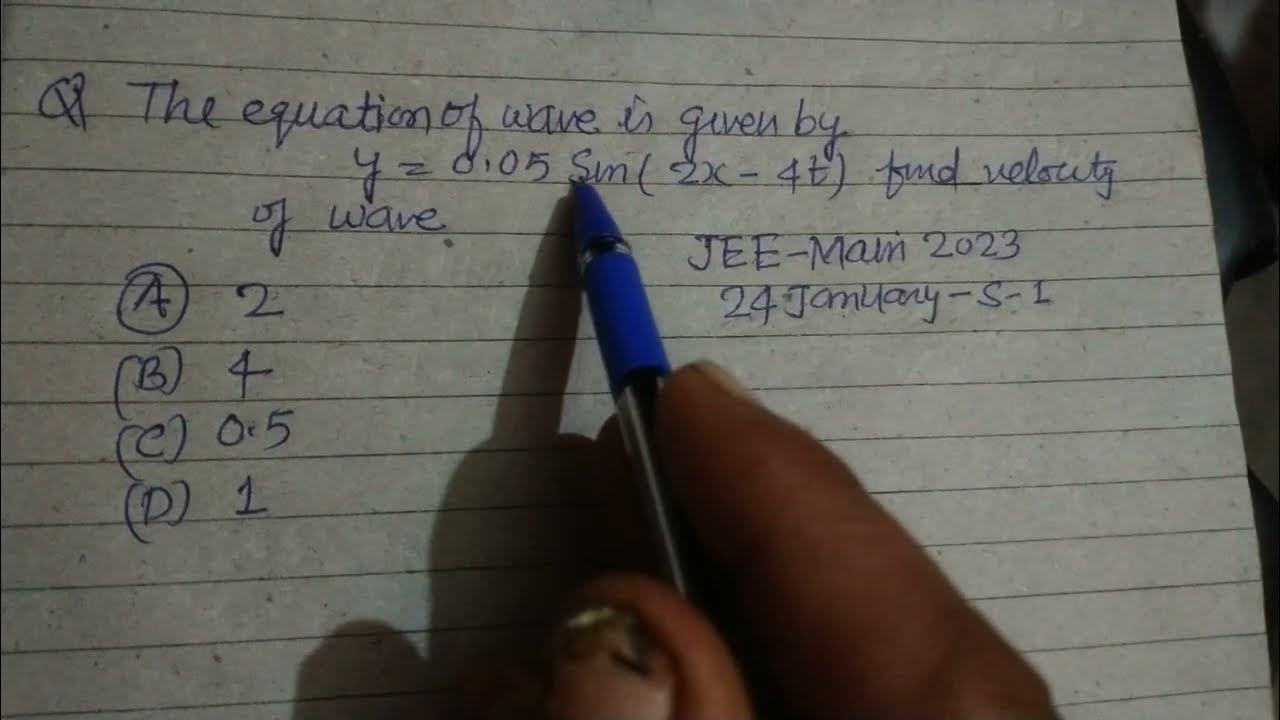 Q The equation of wave is given by
y = 0.05 Sin( 2x - 4t) find velocity
of wave
JEE-Main 2023
24 January-S-1
(A) 2
(B) 4
(C) 0.5
(D) 1